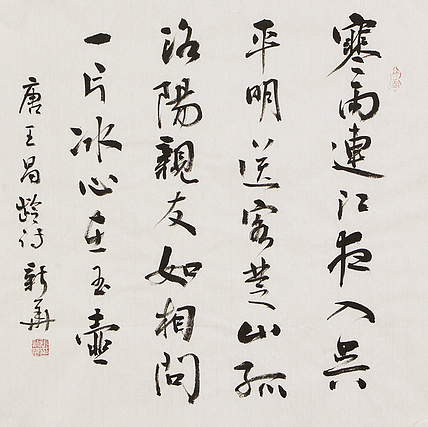 寒雨連江夜入吳
平明送客楚山孤
洛陽親友如相問
一片冰心在玉壺
唐王昌齡诗 新華